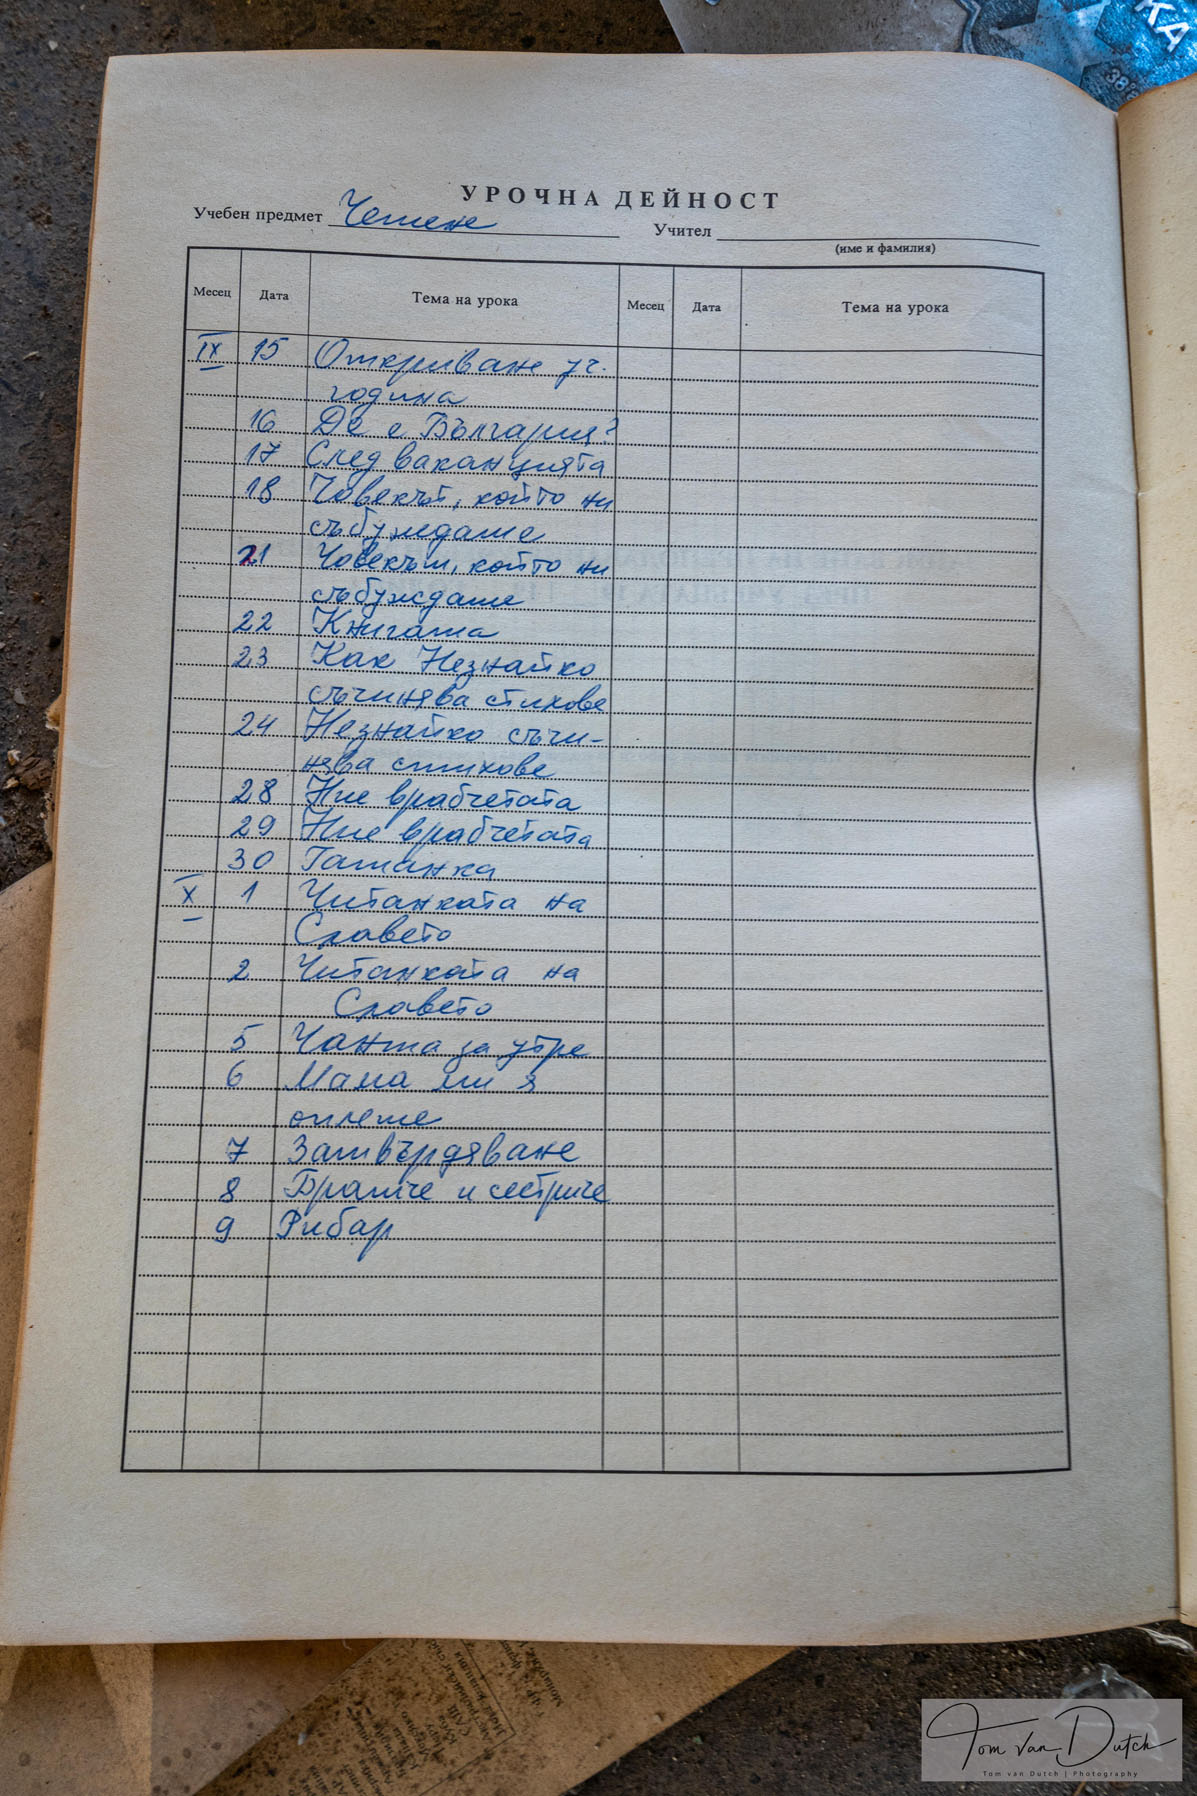 КА
38°
УРОЧНА ДЕЙНОСТ
Учебен предмет Четене Учител
(име и фамилия)
Месец Дата Тема на урока Месец Дата Тема на урока
IX 15 Откриване уч.
година
16 Де е България?
17 След ваканцията
18 Човекът, който ни
събуждаше
21 Човекът, който ни
събуждаше
22 Книгата
23 Как Незнайко
съчинява стихове
24 Незнайко съчи-
нява стихове
28 Ние врабчетата
29 Ние врабчетата
30 Гатанка
X 1 Читанката на
Славето
2 Читанката на
Славето
5 Чанта за утре
6 Мама ми я
оплете
7 Затвърдяване
8 Братче и сестриче
9 Рибар
Tom van Dutch
Tom van Dutch | Photography